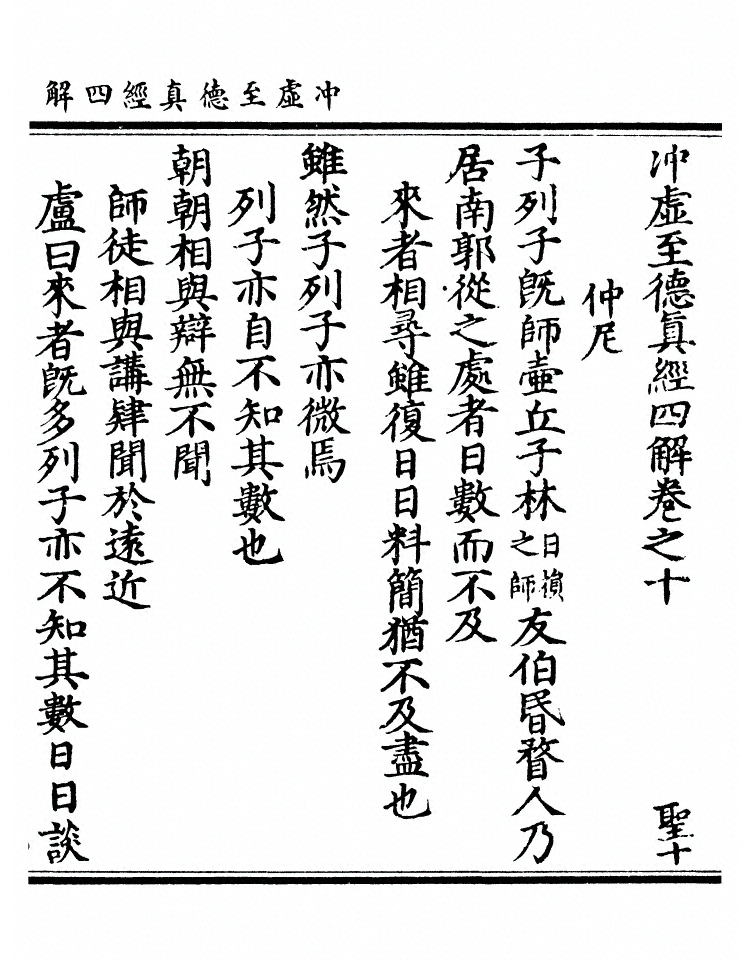 冲虛至德真經四解
冲虛至德眞經四解卷之十　聖十
仲尼
子列子旣師壺丘子林日損之師友伯昬瞀人乃
居南郭從之處者日數而不及
來者相尋雖復日日料簡猶不及盡也
雖然子列子亦微焉
列子亦自不知其數也
朝朝相與辯無不聞
師徒相與講肄聞於遠近
盧曰來者旣多列子亦不知其數日日談